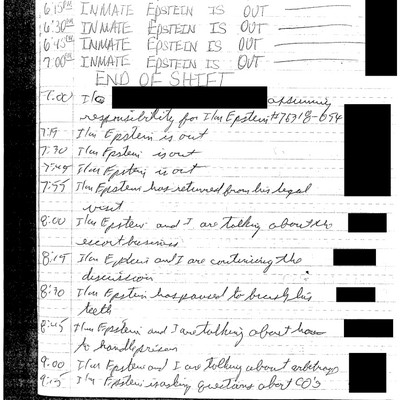 6:15PM INMATE EPSTEIN IS OUT
6:30PM INMATE EPSTEIN IS OUT
6:45PM INMATE EPSTEIN IS OUT
7:00PM INMATE EPSTEIN IS OUT
END OF SHIFT
7:00 I/C assuming
responsibility for I/m Epstein #76318-054
7:15 I/m Epstein is out
7:30 I/m Epstein is out
7:45 I/m Epstein is out
7:55 I/m Epstein has returned from his legal
visit
8:00 I/m Epstein and I are talking about the
escort business
8:15 I/m Epstein and I are continuing the
discussion
8:30 I/m Epstein has paused to brush his
teeth
8:45 I/m Epstein and I are talking about how
to handle prison
9:00 I/m Epstein and I are talking about arbitrage
9:15 I/m Epstein is asking questions about CO's